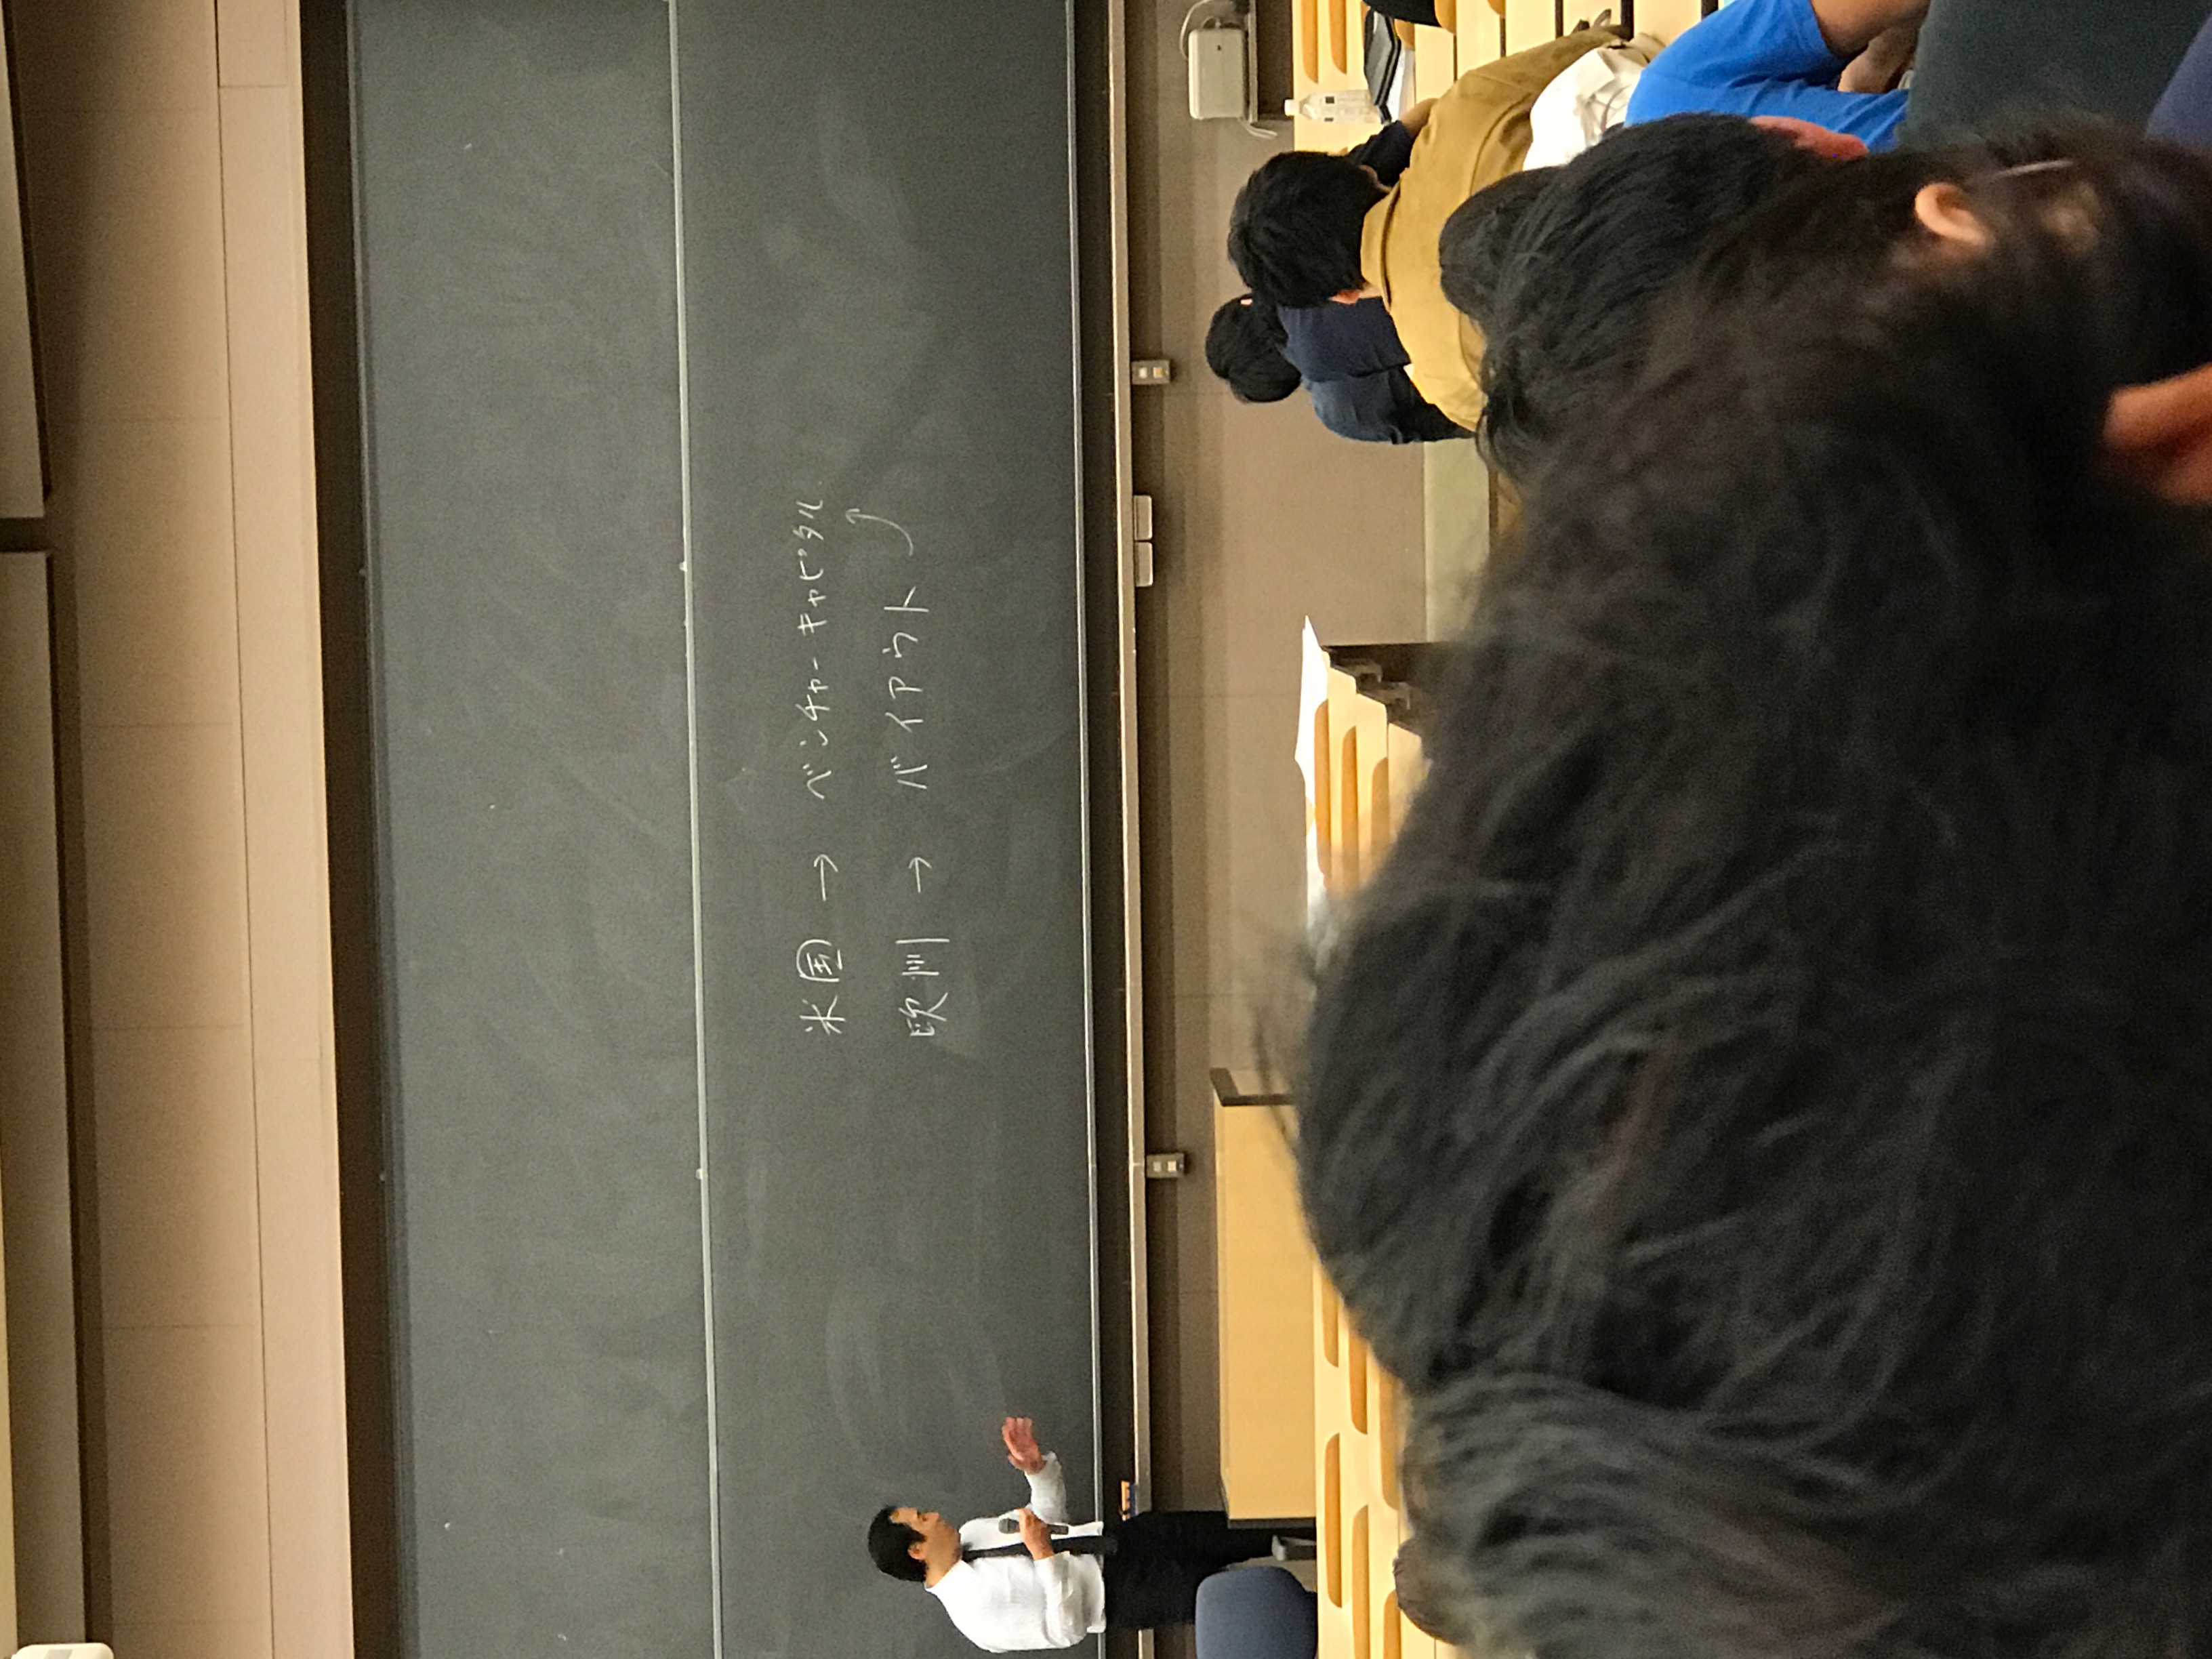 米国 → ベンチャーキャピタル
欧州 → バイアウト